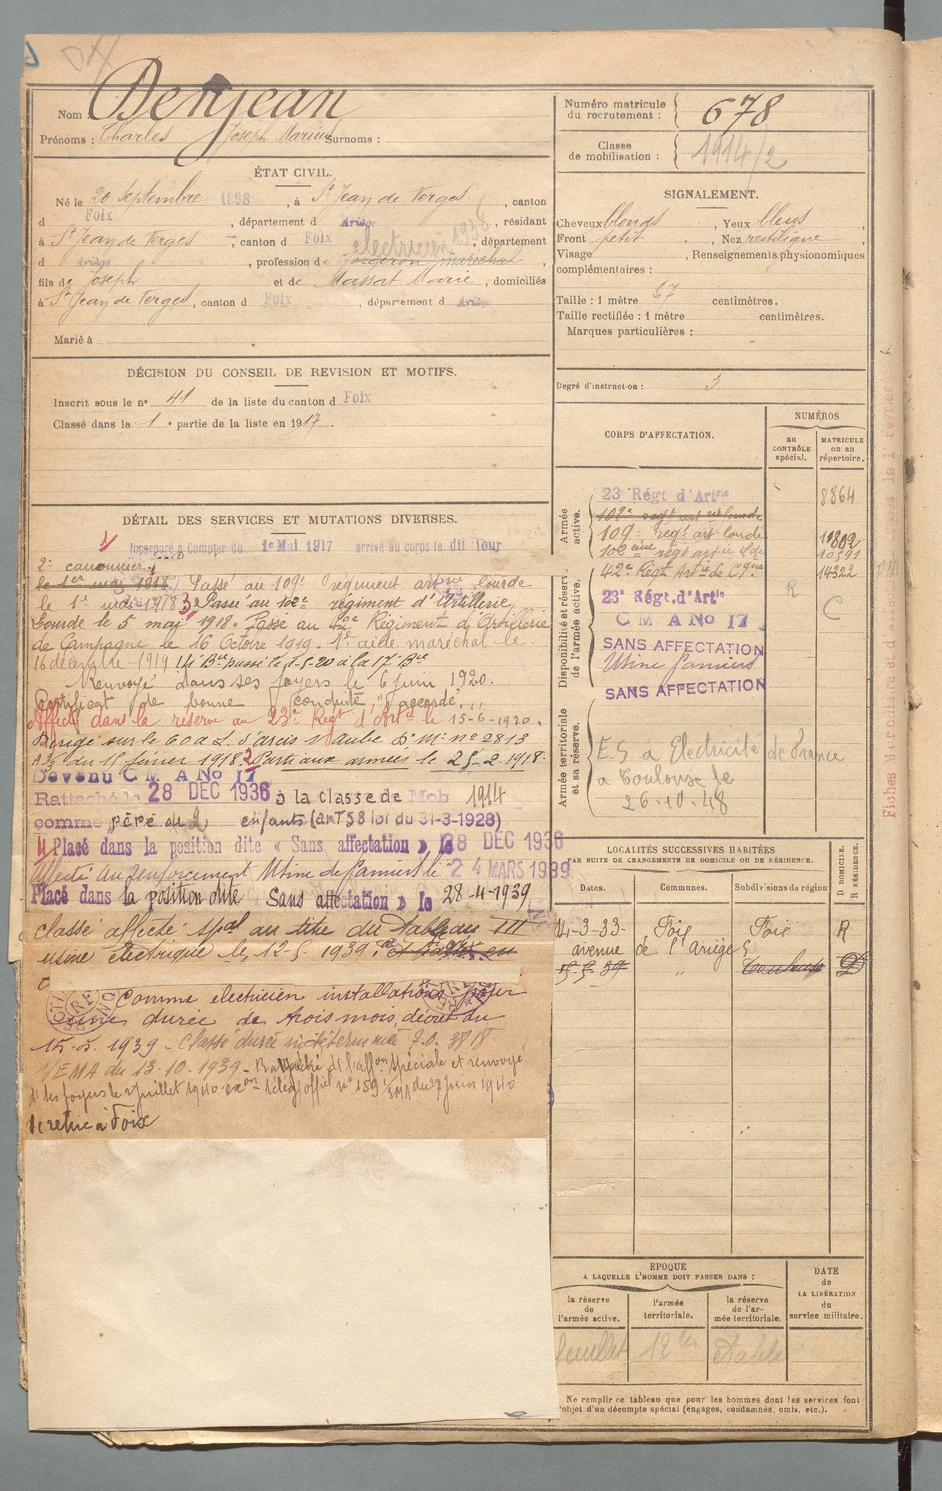 Nom Denjean
Prénoms : Charles Joseph Marius Surnoms :
Numéro matricule du recrutement : 678
Classe de mobilisation : 1914/2
ÉTAT CIVIL.
Né le 20 septembre 1898, à St Jean de Verges, canton
d Foix, département d Ariège, résidant
à St Jean de Verges, canton d Foix, département
d Ariège, profession de forgeron maréchal électricien 1936
fils de Joseph et de Massat Marie, domiciliés
à St Jean de Verges, canton d Foix, département d Ariège
Marié à
SIGNALEMENT.
Cheveux blonds, Yeux bleus
Front petit, Nez rectiligne
Visage , Renseignements physionomiques
complémentaires :
Taille : 1 mètre 67 centimètres.
Taille rectifiée : 1 mètre centimètres.
Marques particulières :
Degré d'instruction : 3
DÉCISION DU CONSEIL DE REVISION ET MOTIFS.
Inscrit sous le n° 41 de la liste du canton d Foix
Classé dans la 1e partie de la liste en 1917.
DÉTAIL DES SERVICES ET MUTATIONS DIVERSES.
Incorporé à Compter du 1e Mai 1917 arrivé au corps le dit jour
2e canonnier
le 1er mai 1918 Passé au 109e régiment artie lourde
le 1er mai 1918 Passé au 102e régiment d'Artillerie
Lourde le 5 mai 1918. Passé au 42e Régiment d'Artillerie
de Campagne le 16 Octobre 1919. 1e aide maréchal le
16 décembre 1919 14 Bie passé le 1-5-20 à la 17 Bie
Renvoyé dans ses foyers le 6 juin 1920.
Certificat de bonne conduite "accordé"
Affecté dans la réserve au 23e Régt d'Artie le 15-6-1920.
Dirigé sur le 60 a L. d'arcis s/ aube D. M. n° 2813
A 3/3 du 15 février 1918. Parti aux armées le 25-2-1918.
Devenu C M A No 17
Rattaché le 28 DEC 1936 à la classe de Mob 1914
comme père de 2 enfants (art 58 loi du 31-3-1928)
Placé dans la position dite « Sans affectation » le 28 DEC 1936
Affecté au renforcement Usine de Pamiers le 24 MARS 1939
Placé dans la position dite « Sans affectation » le 28-4-1939
classé affecté spal au titre du Tableau III
usine électrique le 12-5 1939
Comme electricien installations pour
une durée de trois mois, décret du
15.5.1939 - Classé durée indéterminée J.O. 3718
/EMA du 13-10-1939 - Rattaché de l'affon spéciale et renvoyé
d ses foyers le juillet 1940 officiel n° 159 EMA du 27 juin 1940
Se retire à Foix
CORPS D'AFFECTATION.
NUMÉROS
au CONTRÔLE spécial.
MATRICULE ou au répertoire.
Armée active.
23 Régt d'Artie 8864
102e regt art lourde
109e regt art lourde 10802
102ème régt artie Lde 10591
42e Régt Artie de Cgne 14322
Disponibilité et réserve de l'armée active.
23e Régt. d'Artie R
C M A No 17 C
SANS AFFECTATION
Usine Pamiers
SANS AFFECTATION
Armée territoriale et sa réserve.
E S à Electricité de France
à Toulouse le
26-10-48
LOCALITÉS SUCCESSIVES HABITÉES
PAR SUITE DE CHANGEMENTS DE DOMICILE OU DE RÉSIDENCE.
Dates. Communes. Subdivisions de région
D DOMICILE. R RÉSIDENCE.
14-3-33- Foix Foix R
avenue de l'Ariège 5
Toulouse D
EPOQUE
A LAQUELLE L'HOMME DOIT PASSER DANS :
la réserve de l'armée active.
l'armée territoriale.
la réserve de l'armée territoriale.
DATE de LA LIBÉRATION du service militaire.
Ne remplir ce tableau que pour les hommes dont les services font
l'objet d'un décompte spécial (engagés, condamnés, omis, etc.).